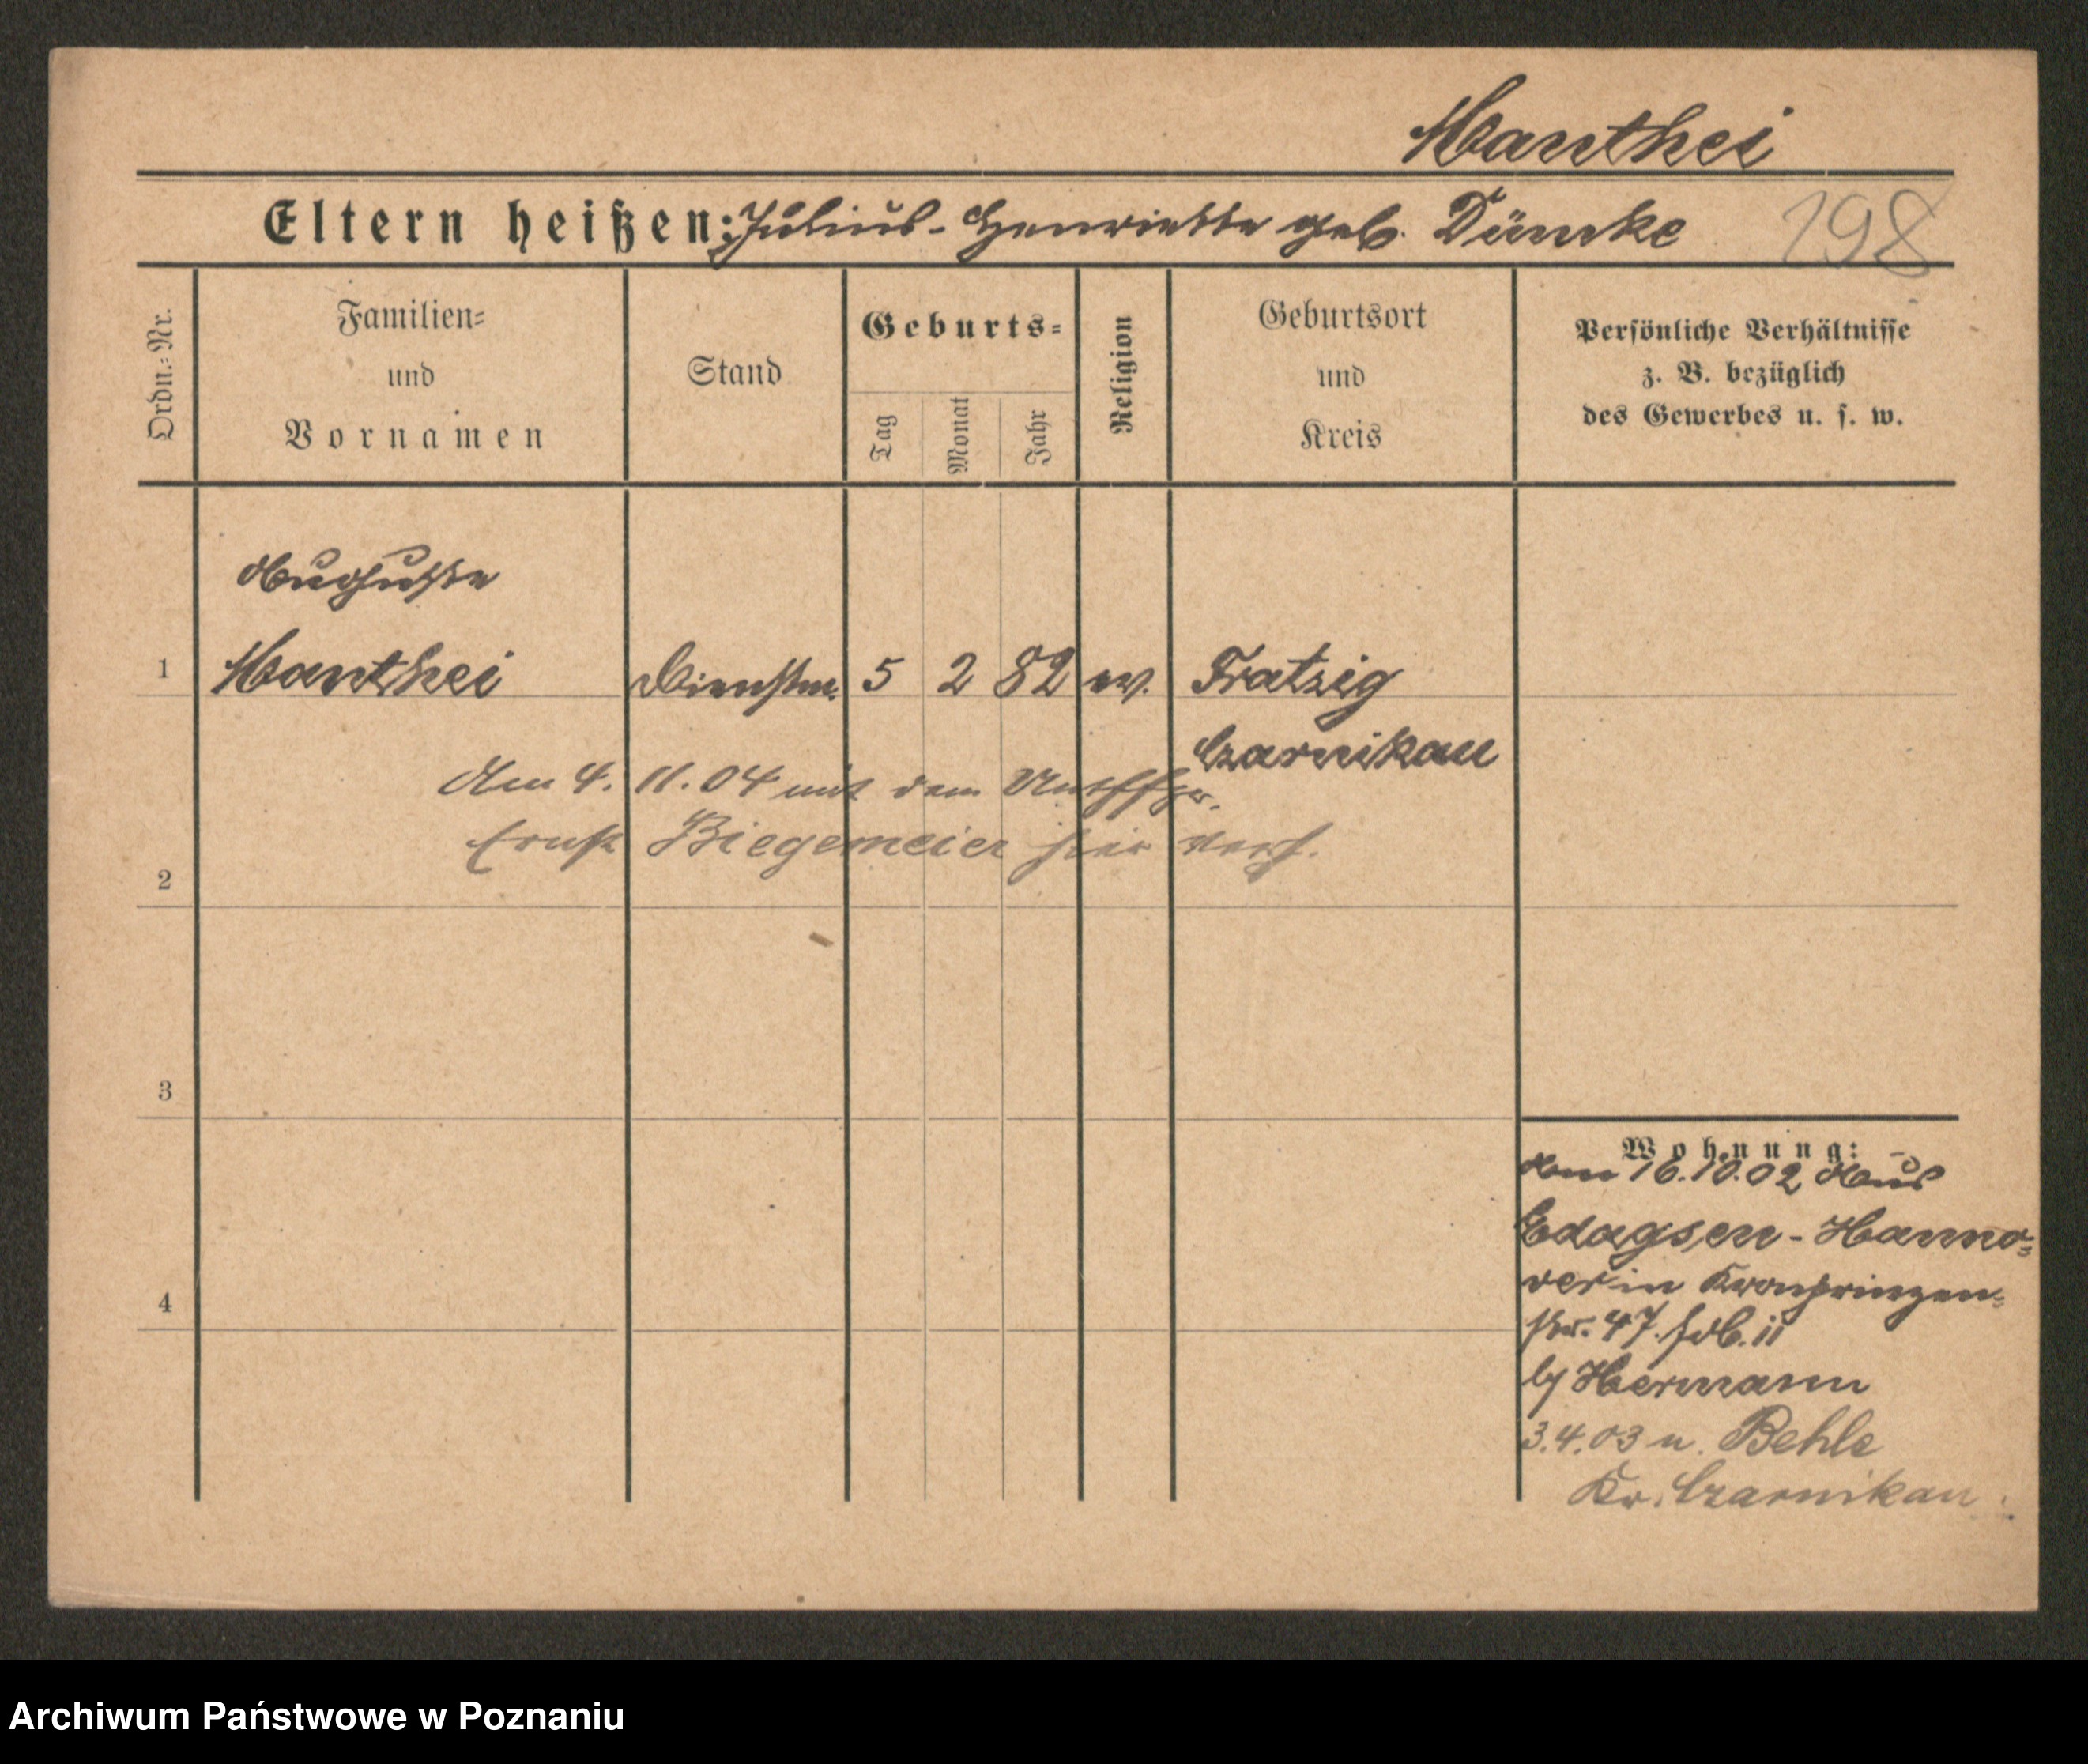 Manthei
Eltern heißen: Julius - Henriette geb. Dümke
198
Ordn.-Nr.
Familien-
und
Vornamen
Stand
Geburts-
Tag
Monat
Jahr
Religion
Geburtsort
und
Kreis
Persönliche Verhältnisse
z. B. bezüglich
des Gewerbes u. s. w.
Auguste
1 Manthei Dienstm. 5 2 82 ev. Fratzig
Czarnikau
Am 4. 11. 04 mit dem
Ernst Biegemeier hier verh.
2
3
4
Wohnung:
Am 16.10.02 Aus
Edagsen-Hanno-
ver in Kronprinzen-
str. 47.
b/ Hermann
3.4.03 n. Behle
Kr. Czarnikau.
Archiwum Państwowe w Poznaniu